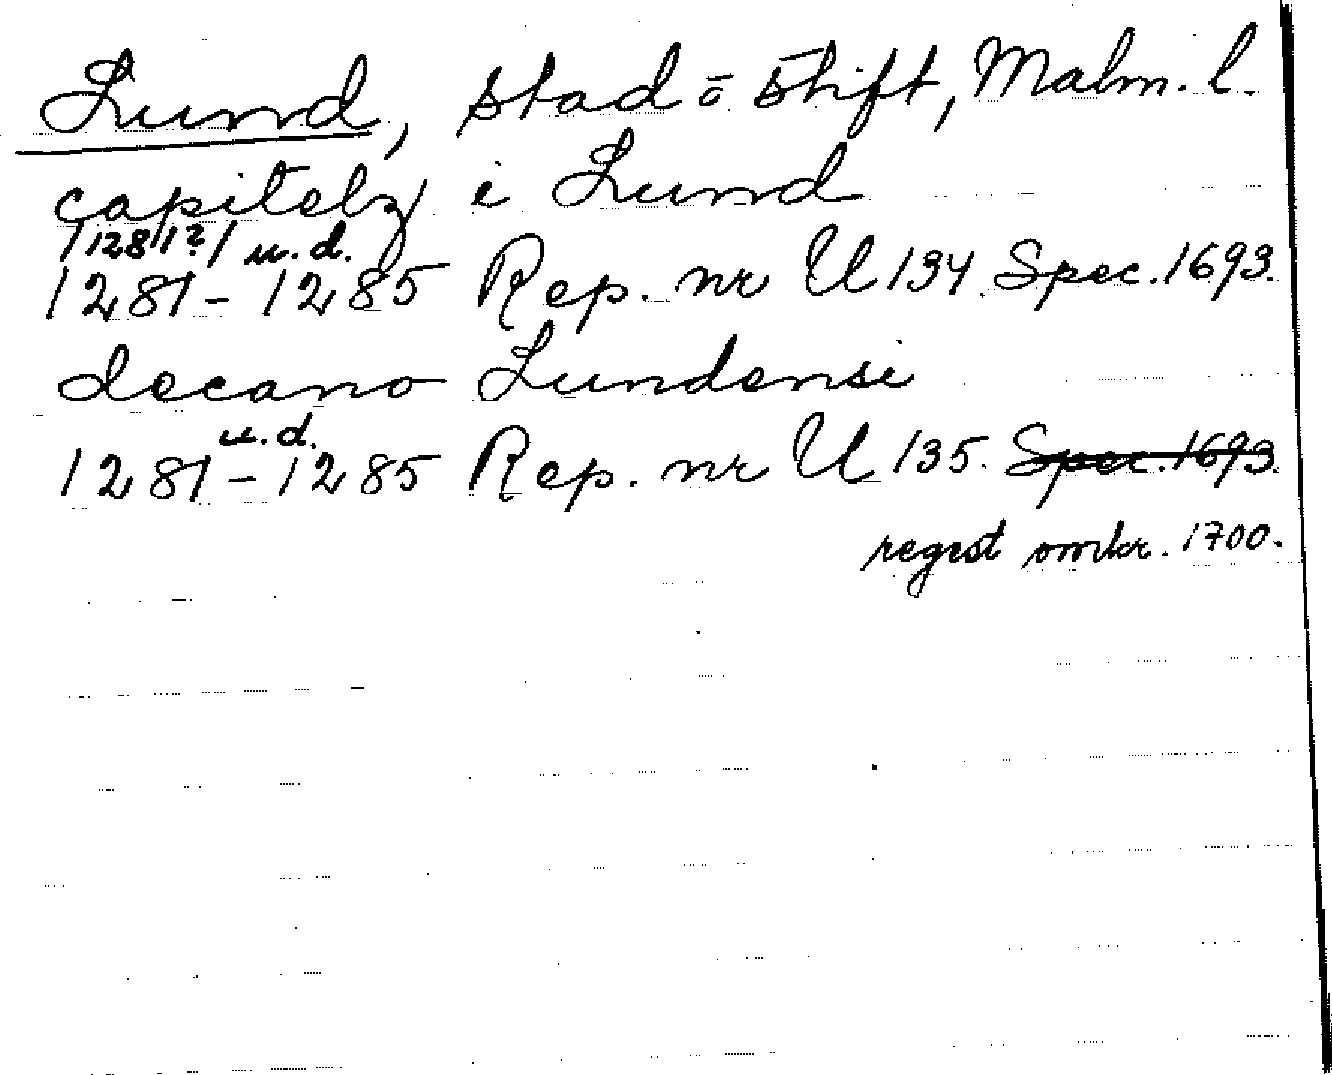 Lund, stad o stift, Malm. l.
capitelz i Lund
/1281?/ u.d.
1281-1285 Rep. nr U 134. Spec. 1693.
decano Lundensi
u.d.
1281-1285 Rep. nr U 135. Spec. 1693
regest omkr. 1700.